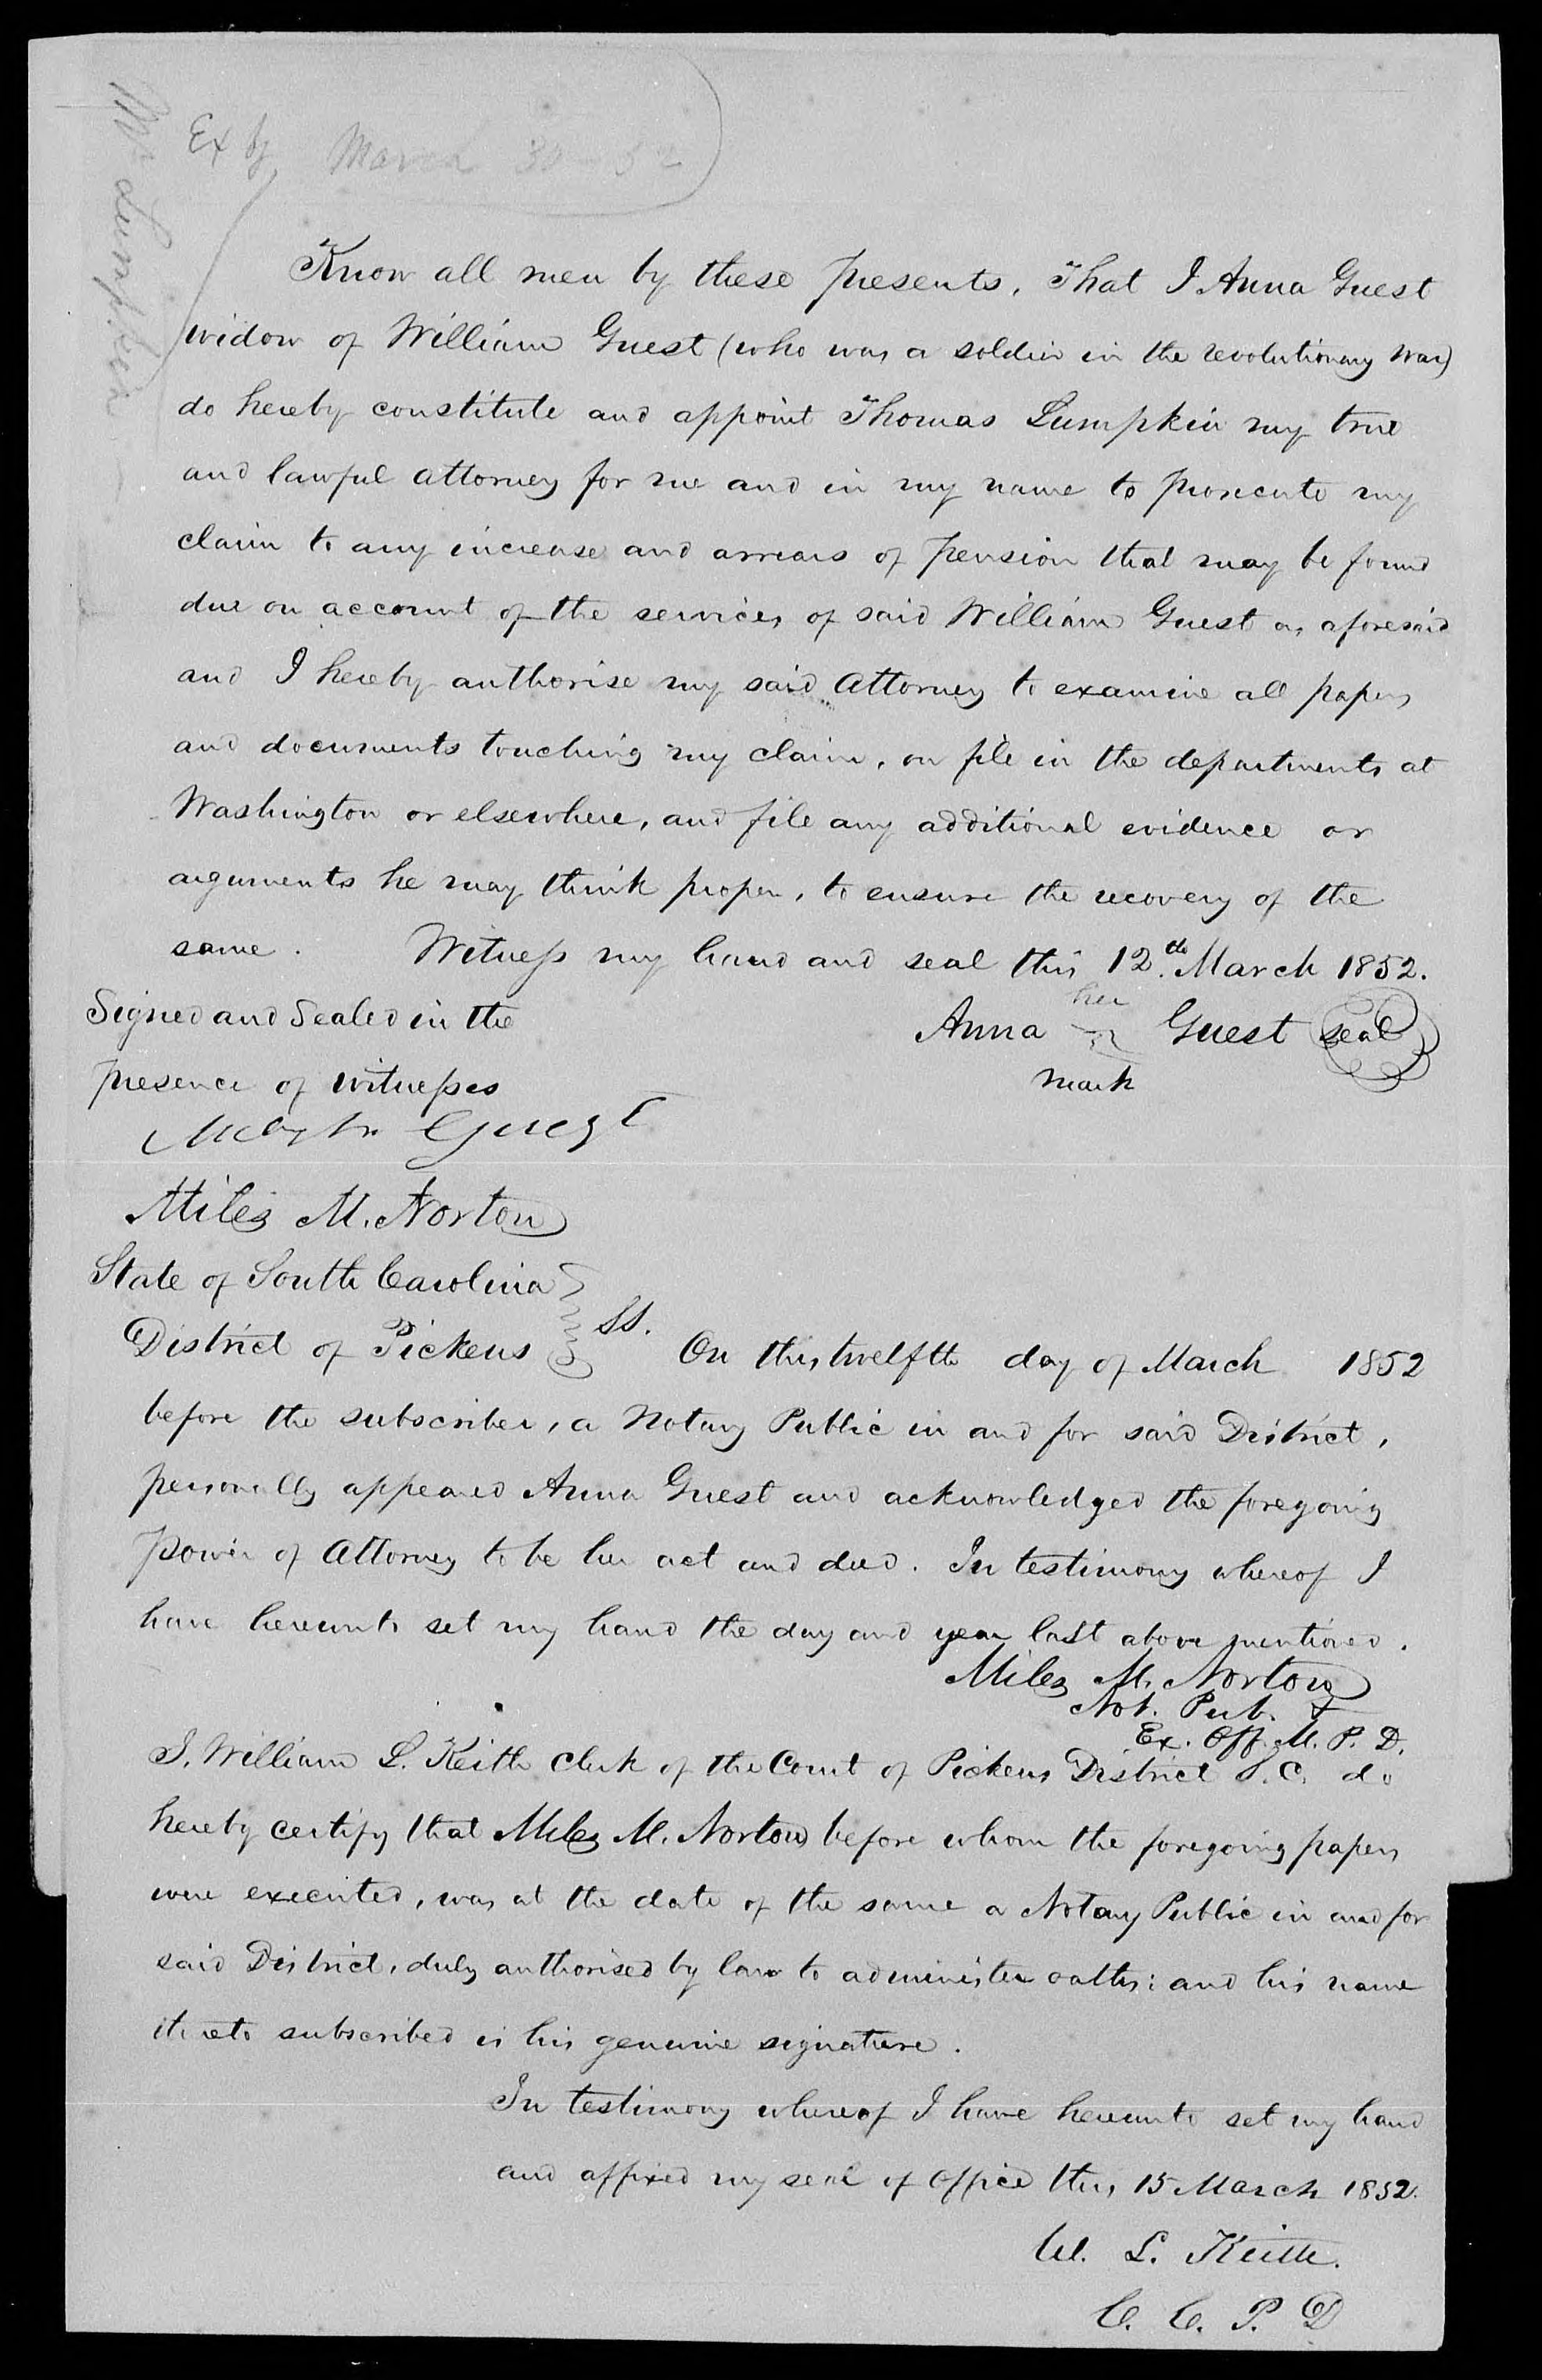 Ex by March 30 - 52
Mr Lumpkin
Know all men by these presents, That I Anna Guest
widow of William Guest (who was a soldier in the revolutionary war)
do hereby constitute and appoint Thomas Lumpkin my true
and lawful attorney for me and in my name to prosecute my
claim to any increase and arrears of pension that may be found
due on account of the services of said William Guest as aforesaid
and I hereby authorise my said Attorney to examine all papers
and documents touching my claim, on file in the departments at
Washington or elsewhere, and file any additional evidence or
arguments he may think proper, to ensure the recovery of the
same. Witness my hand and seal this 12th March 1852.
Signed and Sealed in the
presence of witnesses
her
Anna Guest seal
mark
Guest
Miles M. Norton
State of South Carolina
District of Pickens SS. On this twelfth day of March 1852
before the subscriber, a Notary Public in and for said District,
personally appeared Anna Guest and acknowledged the foregoing
Power of Attorney to be her act and deed. In testimony whereof I
have hereunto set my hand the day and year last above mentioned.
Miles M. Norton
Not. Pub. &
Ex. Off. M. P. D.
I, William L. Keith Clerk of the Court of Pickens District S.C. do
hereby certify that Miles M. Norton before whom the foregoing papers
were executed, was at the date of the same a Notary Public in and for
said District, duly authorised by law to administer oaths; and his name
thereto subscribed is his genuine signature.
In testimony whereof I have hereunto set my hand
and affixed my seal of office this 15 March 1852.
W. L. Keith.
C. C. P. D